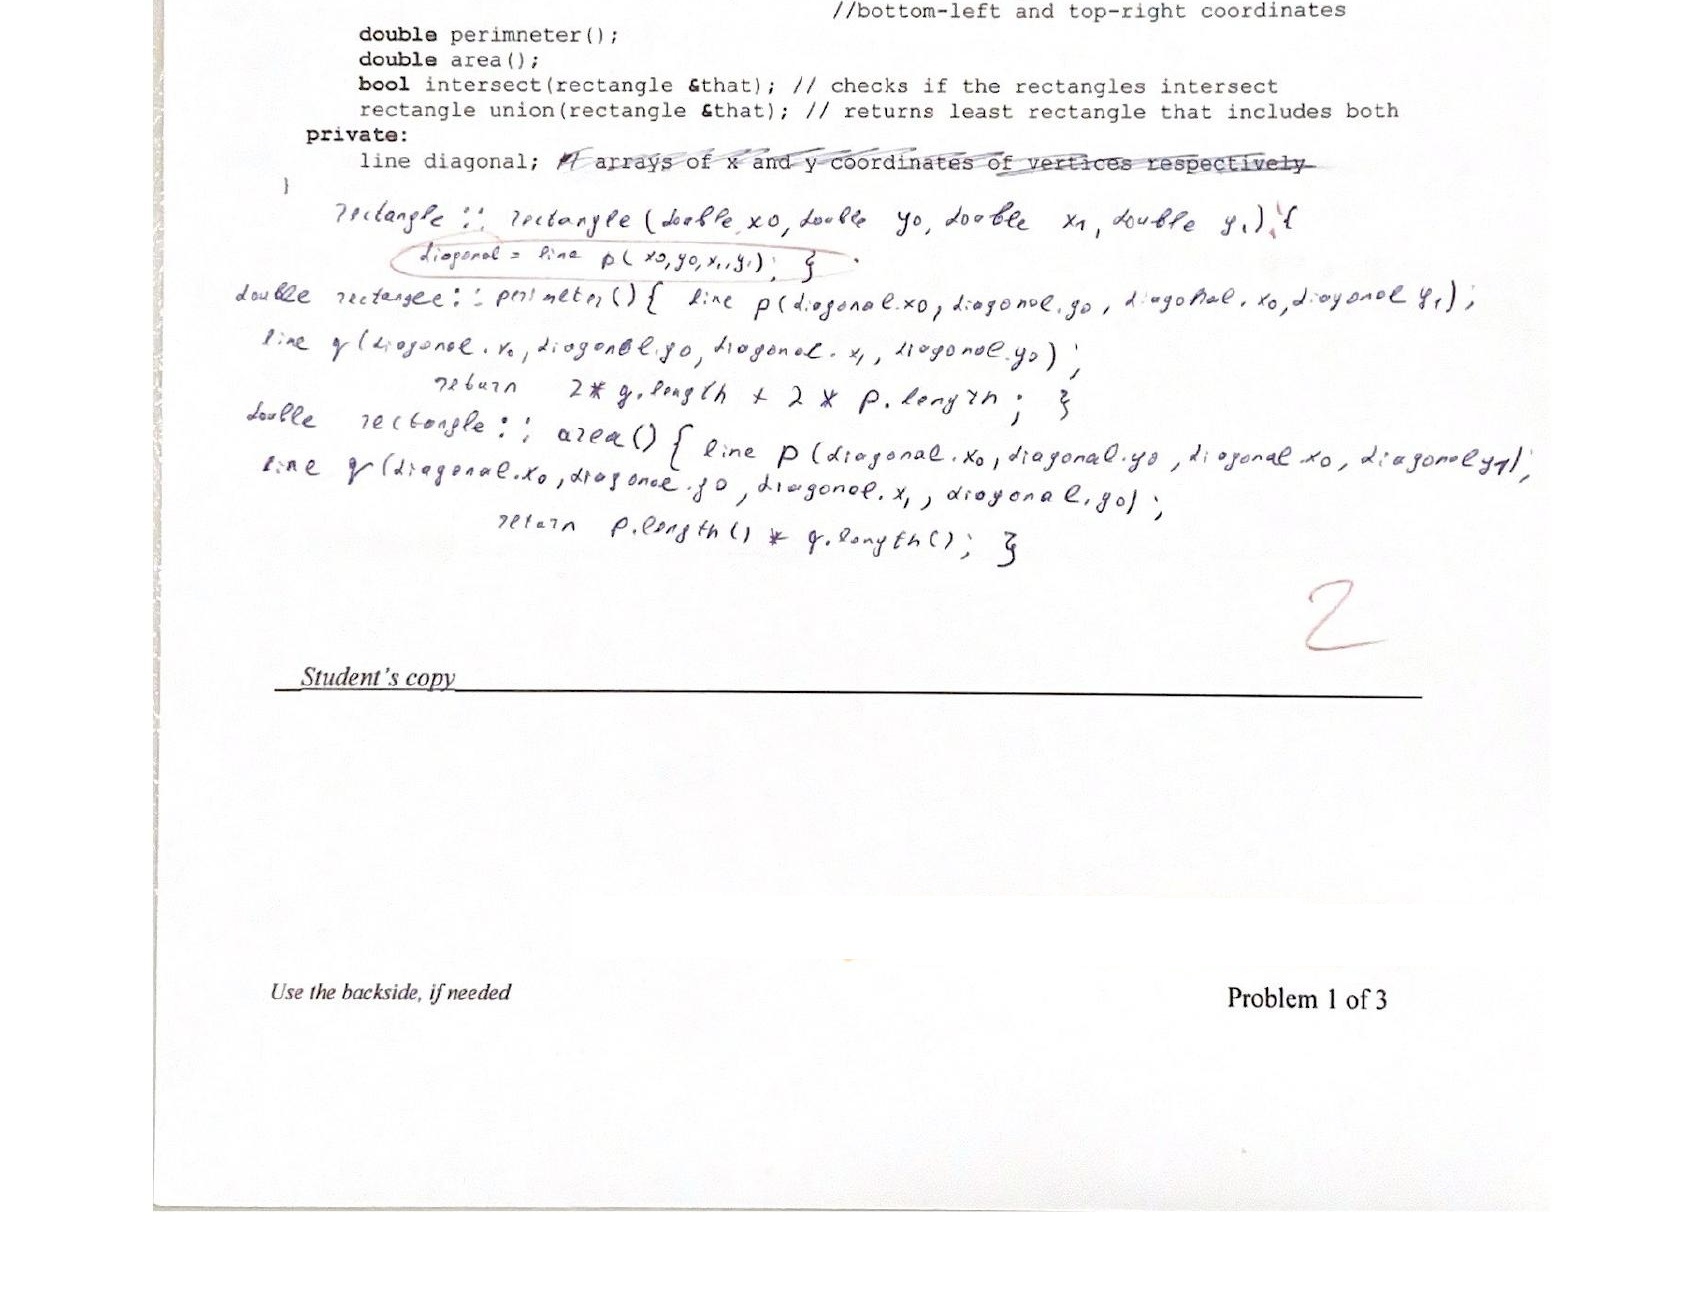 //bottom-left and top-right coordinates
double perimneter();
double area();
bool intersect(rectangle &that); // checks if the rectangles intersect
rectangle union(rectangle &that); // returns least rectangle that includes both
private:
line diagonal; // arrays of x and y coordinates of vertices respectively
}
rectangle :: rectangle (double x0, double y0, double x1, double y1) {
diagonal = line p( x0, y0, x1, y1); }
double rectangle :: perimeter() { line p(diagonal.x0, diagonal.y0, diagonal.x0, diagonal y1);
line q (diagonal.x0, diagonal.y0, diagonal.x1, diagonal.y0);
return 2* q.length + 2 * p.length ; }
double rectangle :: area() { line p (diagonal.x0, diagonal.y0, diagonal x0, diagonal y1);
line q (diagonal.x0, diagonal.y0, diagonal.x1, diagonal.y0);
return p.length() * q.length(); }
2
Student's copy
Use the backside, if needed
Problem 1 of 3